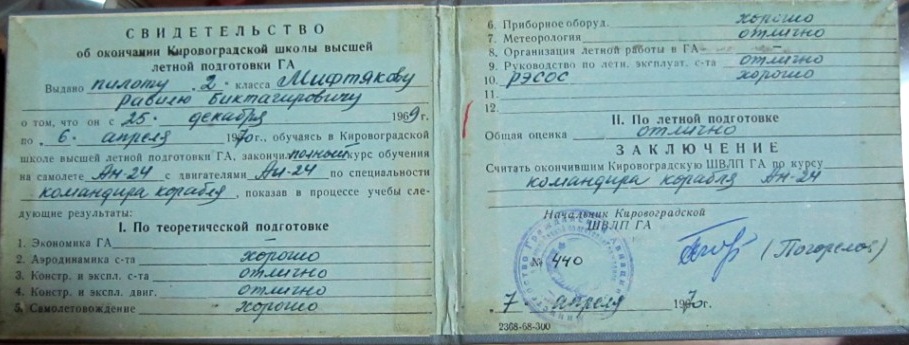 СВИДЕТЕЛЬСТВО
об окончании Кировоградской школы высшей
летной подготовки ГА
Выдано пилоту 2 класса Мифтякову
Равилю Биктагировичу
о том, что он с 25. декабря 1969г.
по 6. апреля 1970г., обучаясь в Кировоградской
школе высшей летной подготовки ГА, закончил полный курс обучения
на самолете Ан-24 с двигателями Ан-24 по специальности
командира корабля, показав в процессе учебы сле-
дующие результаты:
I. По теоретической подготовке
1. Экономика ГА —
2. Аэродинамика с-та хорошо
3. Констр. и экспл. с-та отлично
4. Констр. и экспл. двиг. отлично
5. Самолетовождение хорошо
6. Приборное оборуд. хорошо
7. Метеорология отлично
8. Организация летной работы в ГА —
9. Руководство по летн. эксплуат. с-та отлично
10. РЭСОС хорошо
11.
12.
II. По летной подготовке
Общая оценка отлично
ЗАКЛЮЧЕНИЕ
Считать окончившим Кировоградскую ШВЛП ГА по курсу
командира корабля Ан-24
Начальник Кировоградской
ШВЛП ГА
(Погорелов)
№ 440
7 апреля 1970г.
2368-68-300